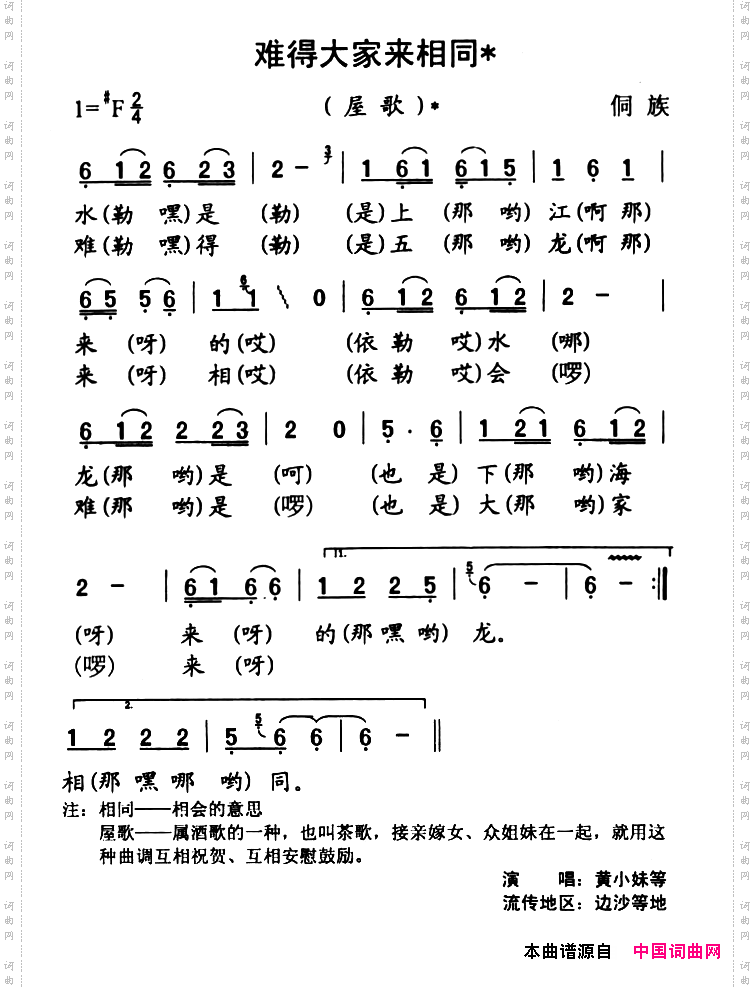 难得大家来相同*
1=#F 2/4 （屋歌）* 侗族
6 1 2 6 2 3 | 2 - 3 | 1 6 1 6 1 5 | 1 6 1 |
水(勒 嘿)是 (勒) (是)上 (那 哟) 江(啊 那)
难(勒 嘿)得 (勒) (是)五 (那 哟) 龙(啊 那)
6 5 5 6 | 1 6 1 0 | 6 1 2 6 1 2 | 2 - |
来 (呀) 的(哎) (依 勒 哎)水 (哪)
来 (呀) 相(哎) (依 勒 哎)会 (啰)
6 1 2 2 2 3 | 2 0 | 5 · 6 | 1 2 1 6 1 2 |
龙(那 哟)是 (呵) (也 是) 下(那 哟)海
难(那 哟)是 (啰) (也 是) 大(那 哟)家
2 - | 6 1 6 6 | 1. 1 2 2 5 | 5 6 - | 6 - :|
(呀) 来 (呀) 的(那 嘿 哟) 龙。
(啰) 来 (呀)
2. 1 2 2 2 | 5 5 6 6 | 6 - ||
相(那 嘿 哪 哟) 同。
注：相同——相会的意思
屋歌——属酒歌的一种，也叫茶歌，接亲嫁女、众姐妹在一起，就用这
种曲调互相祝贺、互相安慰鼓励。
演 唱：黄小妹等
流传地区：边沙等地
本曲谱源自 中国词曲网